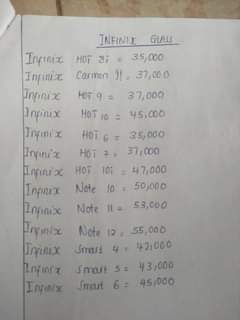 INFINIX GLASS
Infinix HOT 8i = 35,000
Infinix Camon 11 = 37,000
Infinix HOT 9 = 37,000
Infinix HOT 10 = 45,000
Infinix HOT 6 = 35,000
Infinix HOT 7 = 37,000
Infinix HOT 10i = 47,000
Infinix Note 10 = 50,000
Infinix Note 11 = 53,000
Infinix Note 12 = 55,000
Infinix Smart 4 = 42,000
Infinix Smart 5 = 43,000
Infinix Smart 6 = 45,000